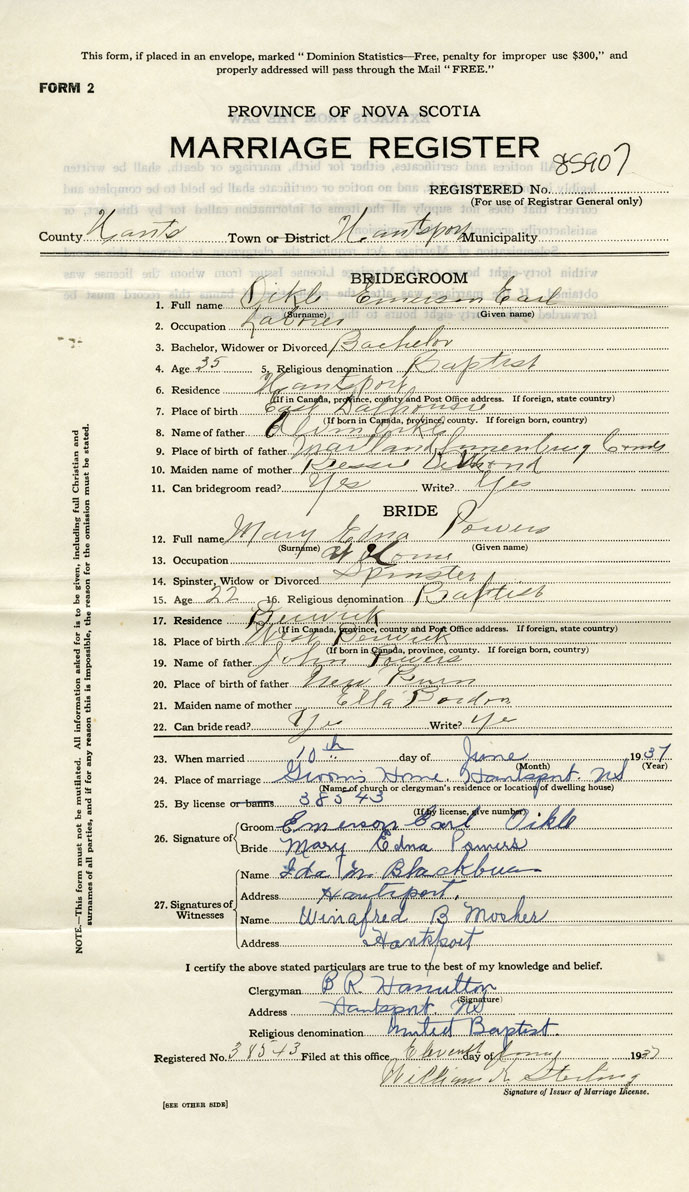 This form, if placed in an envelope, marked "Dominion Statistics—Free, penalty for improper use $300," and
properly addressed will pass through the Mail "FREE."
FORM 2
PROVINCE OF NOVA SCOTIA
MARRIAGE REGISTER
85907
REGISTERED No.
(For use of Registrar General only)
County Hants Town or District Hantsport Municipality
BRIDEGROOM
1. Full name Oikle Emerson Earl
(Surname) (Given name)
2. Occupation Laborer
3. Bachelor, Widower or Divorced Bachelor
4. Age 35 5. Religious denomination Baptist
6. Residence Hantsport
(If in Canada, province, county and Post Office address. If foreign, state country)
7. Place of birth East Dalhousie
(If born in Canada, province, county. If foreign born, country)
8. Name of father Oikle
9. Place of birth of father Maitland Lunenburg
10. Maiden name of mother Bessie
11. Can bridegroom read? Yes Write? Yes
BRIDE
12. Full name Mary Edna Powers
(Surname) (Given name)
13. Occupation At Home
14. Spinster, Widow or Divorced Spinster
15. Age 22 16. Religious denomination Baptist
17. Residence Berwick
(If in Canada, province, county and Post Office address. If foreign, state country)
18. Place of birth West Berwick
(If born in Canada, province, county. If foreign born, country)
19. Name of father John Powers
20. Place of birth of father New
21. Maiden name of mother Ella
22. Can bride read? Yes Write? Ye
23. When married 10th day of June 1937
(Month) (Year)
24. Place of marriage Groom's Home. Hantsport. NS
(Name of church or clergyman's residence or location of dwelling house)
25. By license or banns 38543
(If by license, give number)
26. Signature of
Groom Emerson Earl Oikle
Bride Mary Edna Powers
27. Signatures of Witnesses
Name Ida M. Blackburn
Address Hantsport.
Name Winafred B Mosher
Address Hantsport
I certify the above stated particulars are true to the best of my knowledge and belief.
Clergyman B R. Hamilton
(Signature)
Address Hantsport. NS
Religious denomination United Baptist.
Registered No. 38543 Filed at this office Eleventh day of 1937
William K Sterling
Signature of Issuer of Marriage License.
[SEE OTHER SIDE]
NOTE.—This form must not be mutilated. All information asked for is to be given, including full Christian and
surnames of all parties, and if for any reason this is impossible, the reason for the omission must be stated.